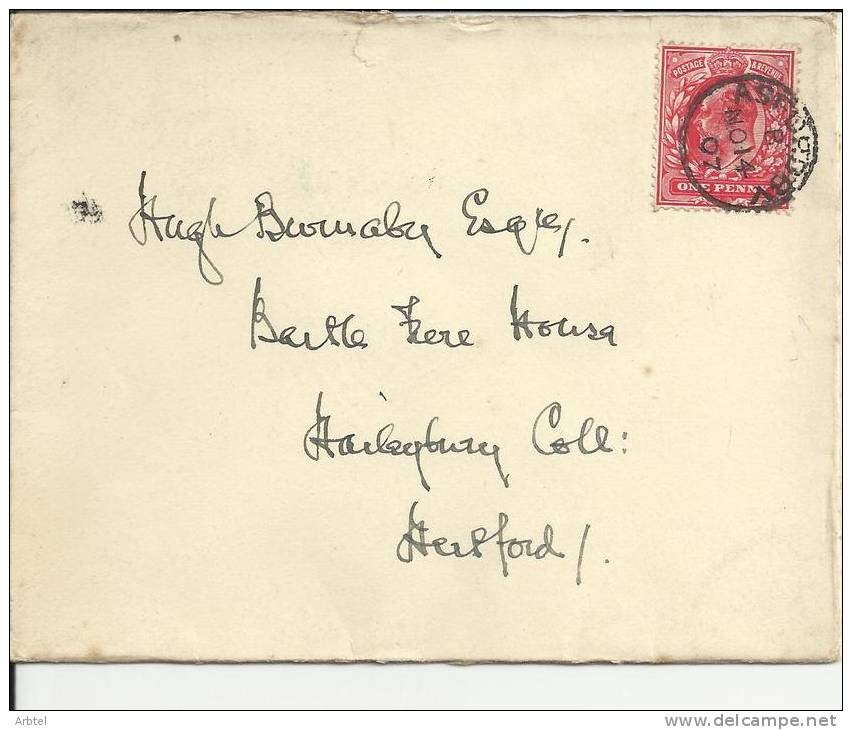 POSTAGE & REVENUE
ASFORDBY
B
NO 14
07
ONE PENNY
Hugh Burnaby Esqre/.
Bartle Frere House
Haileybury Coll:
Hertford/.
Arbtel
http://www.delcampe.net